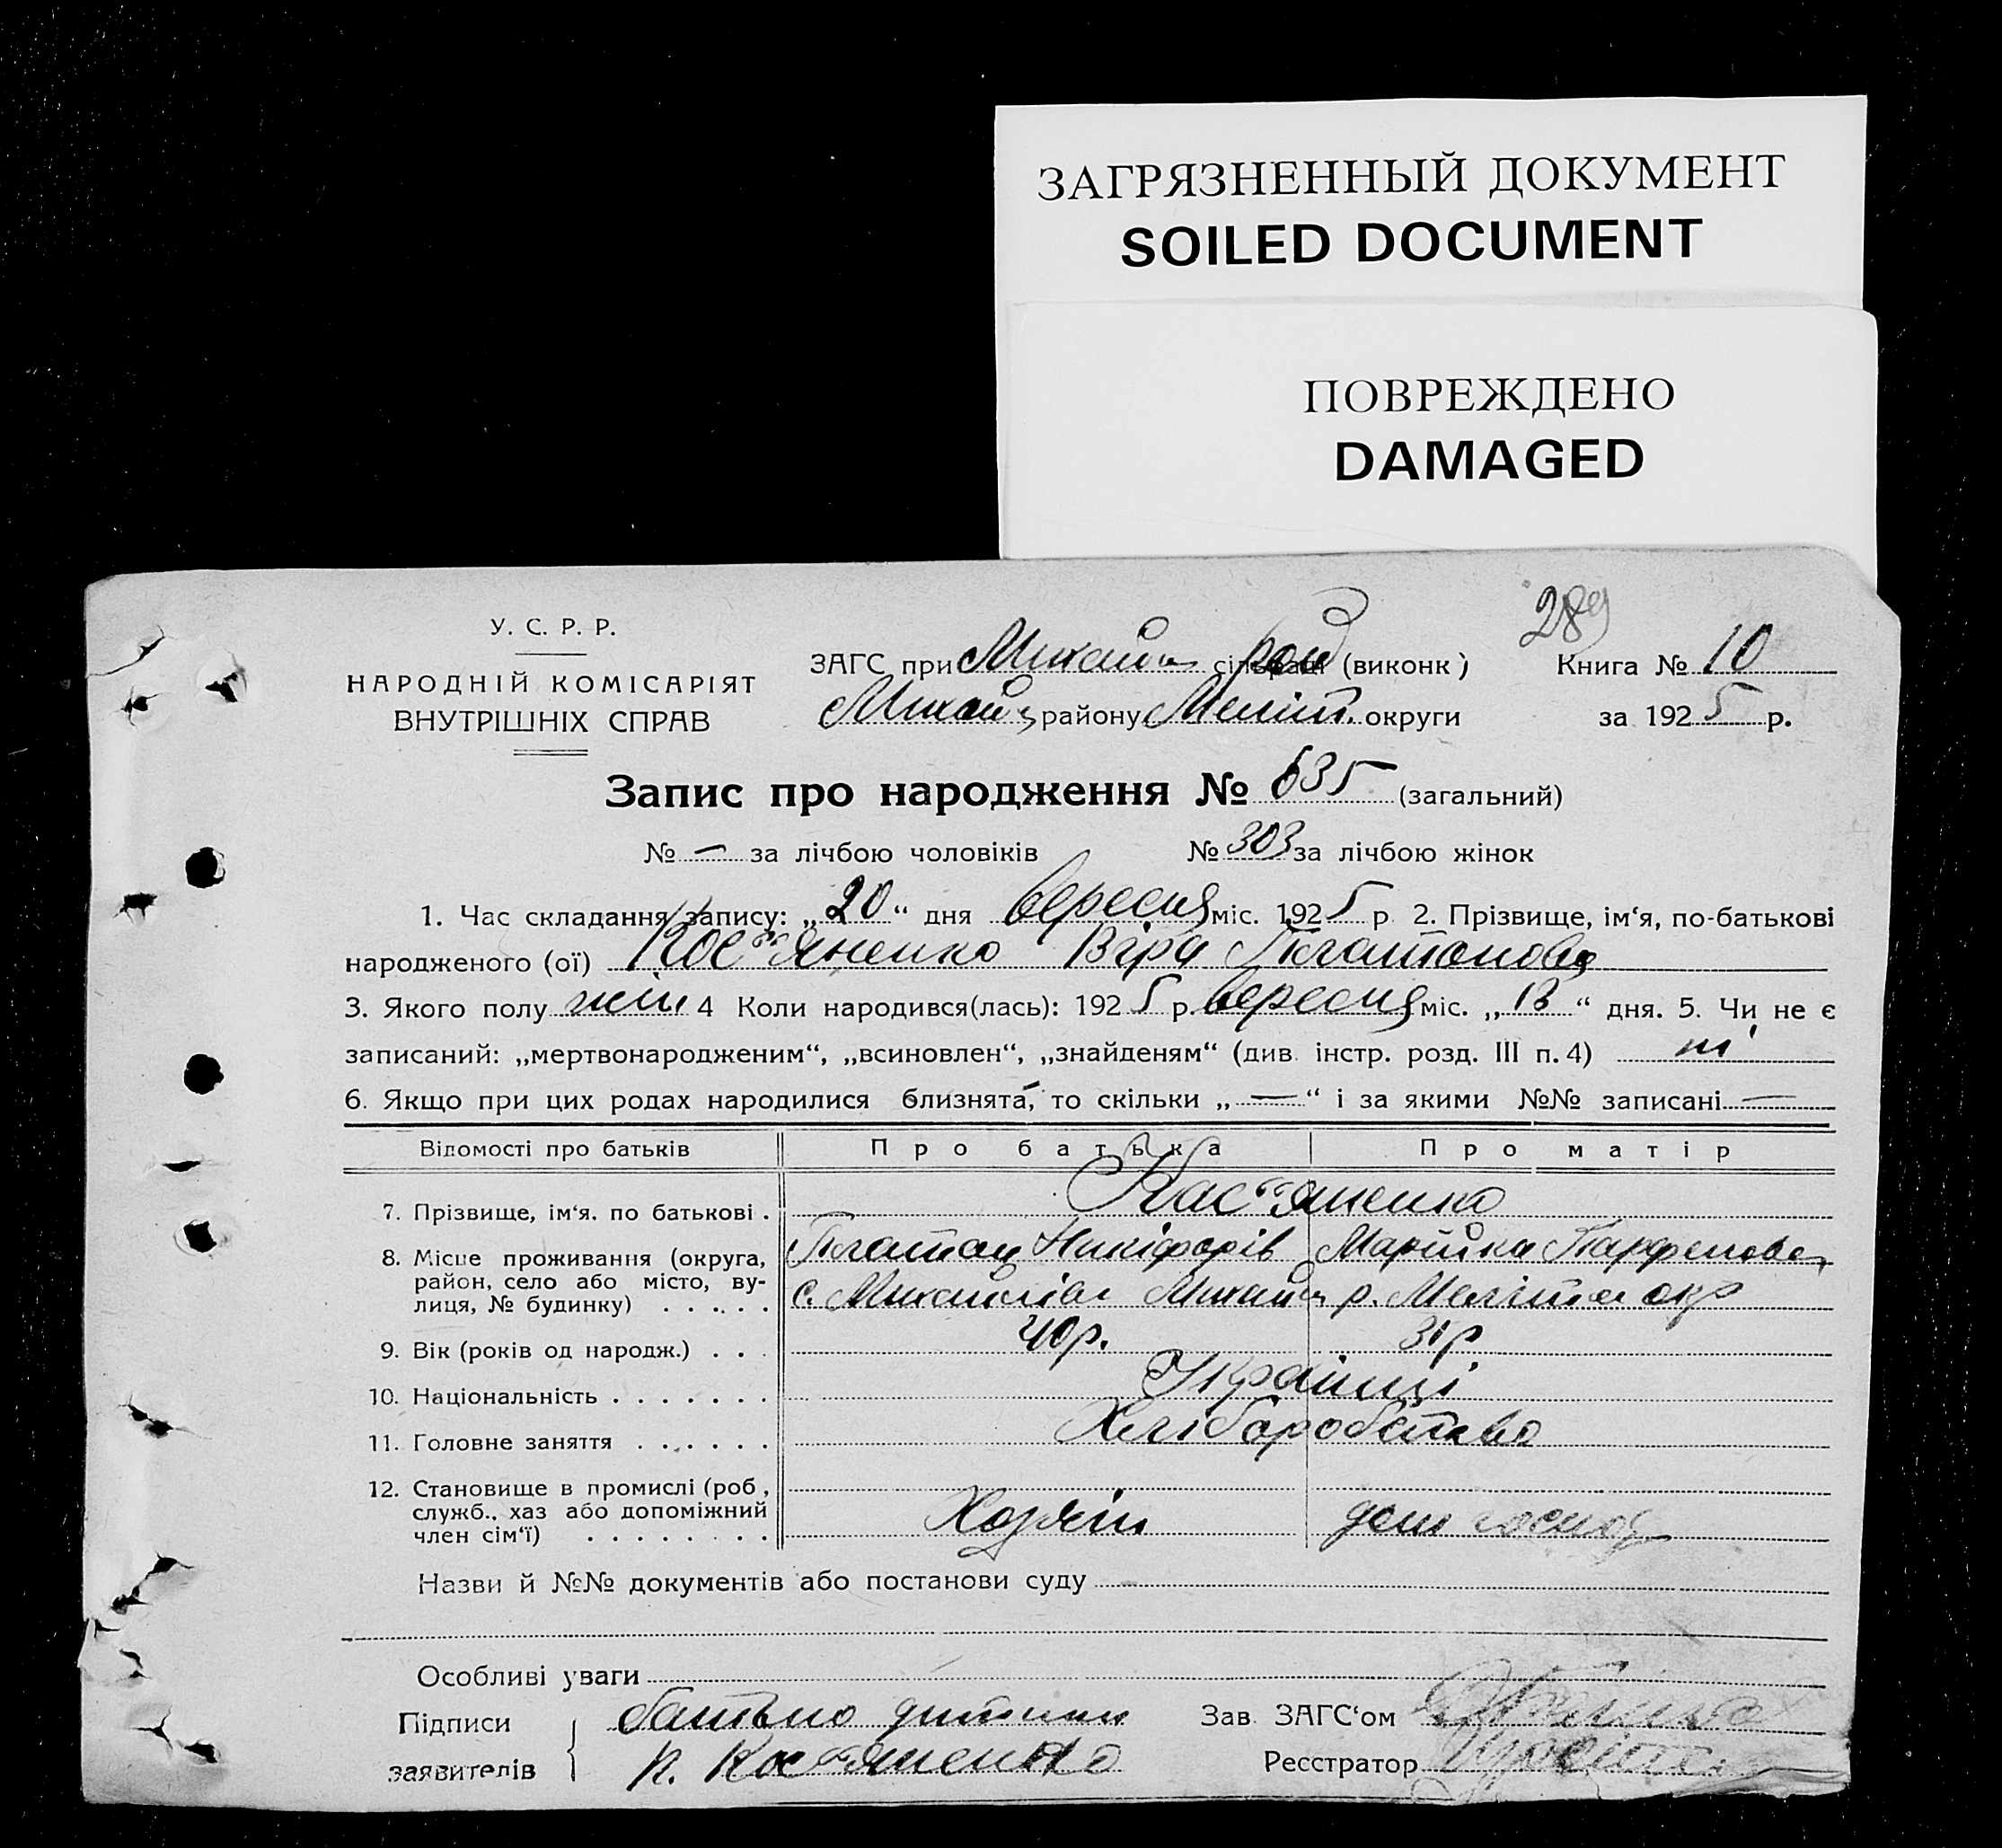 ЗАГРЯЗНЕННЫЙ ДОКУМЕНТ
SOILED DOCUMENT
ПОВРЕЖДЕНО
DAMAGED
289
У. С. Р. Р.
НАРОДНІЙ КОМІСАРІЯТ
ВНУТРІШНІХ СПРАВ
ЗАГС при Михайл сільраді (виконк) Книга № 10
Михай району Меліт. округи за 1925 р.
Запис про народження № 635 (загальний)
№ — за лічбою чоловіків № 303 за лічбою жінок
1. Час складання запису: „20“ дня вересня міс. 1925 р. 2. Прізвище, ім‘я, по-батькові
народженого (ої) Кос"яненко Віра Платонова
3. Якого полу жін 4 Коли народився(лась): 1925 р. вересня міс. „13“ дня. 5. Чи не є
записаний: „мертвонародженим“, „всиновлен“, „знайденям“ (див. інстр. розд. III п. 4) ні
6. Якщо при цих родах народилися близнята, то скільки „—“ і за якими №№ записані —
Відомості про батьків Про батька Про матір
7. Прізвище, ім‘я. по батькові . Кас"яненко
Платон Никіфорів Марійка Парфенова
8. Місце проживання (округа,
район, село або місто, ву-
лиця, № будинку) . . . . . с. Михайлівка Михайл р. Меліт окр
9. Вік (років од народж.) . . . 40р. 31р
10. Національність . . . . . . . Українці
11. Головне заняття . . . . . . Хліборобство
12. Становище в промислі (роб.,
служб., хаз або допоміжний
член сім‘ї) . . . . . . . . Хозяїн дом господ
Назви й №№ документів або постанови суду
Особливі уваги
Підписи батько дитини Зав. ЗАГС‘ом
заявителів П. Кос"яненко Реєстратор